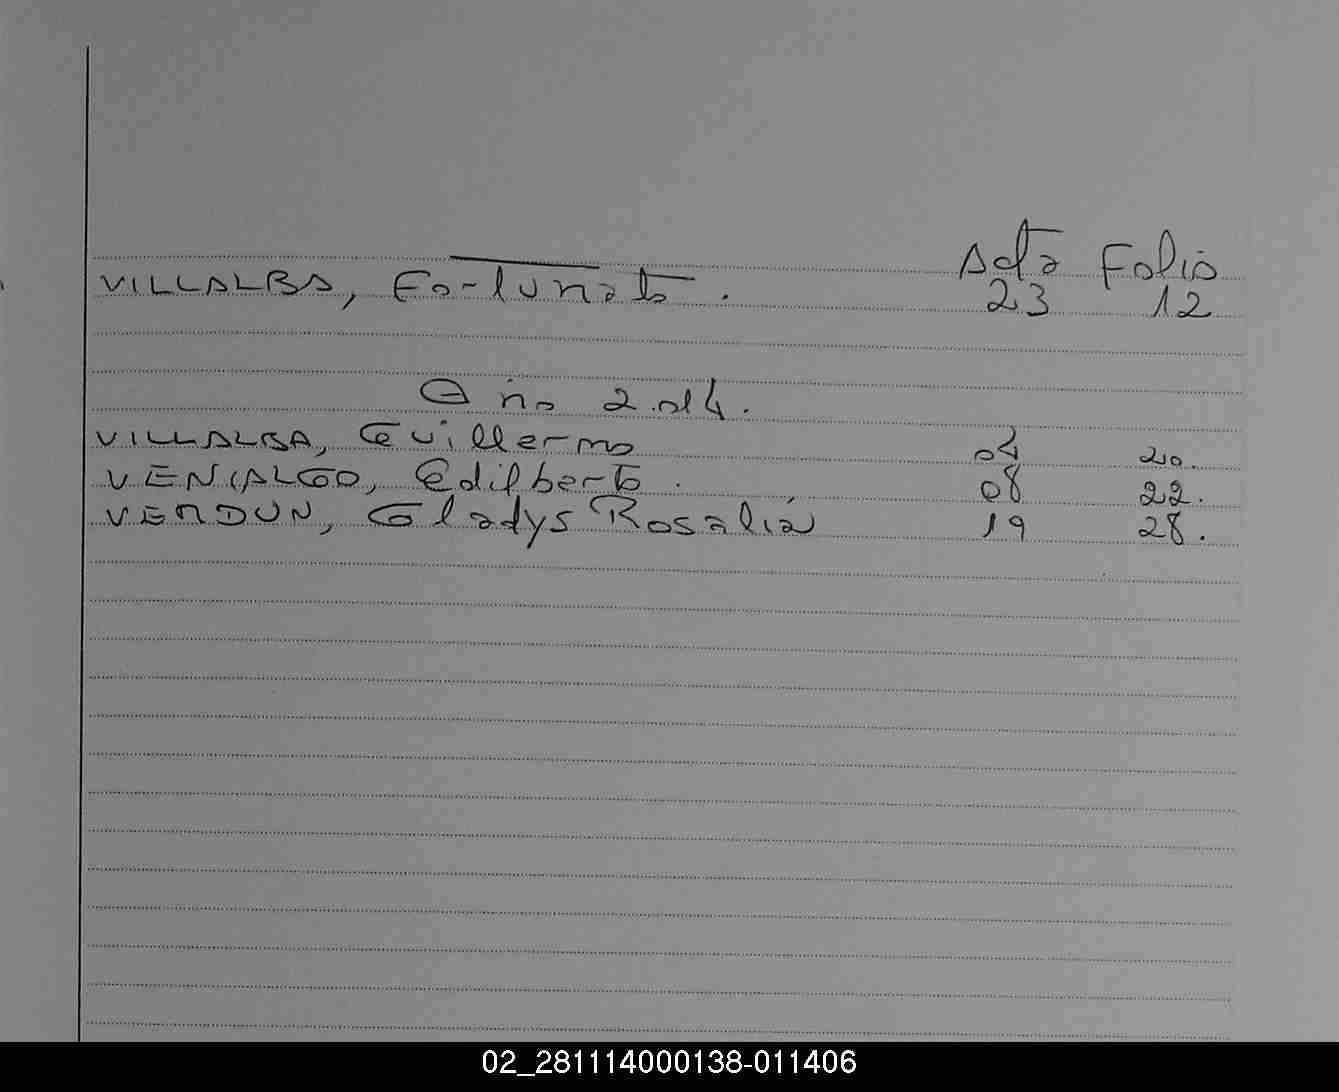 Acta Folio
VILLALBA, Fortunato. 23 12
Año 2.014.
VILLALBA, Guillermo 04 20.
VENIALGO, Edilberto. 08 22.
VERDUN, Gladys Rosalía 19 28.
02_281114000138-011406